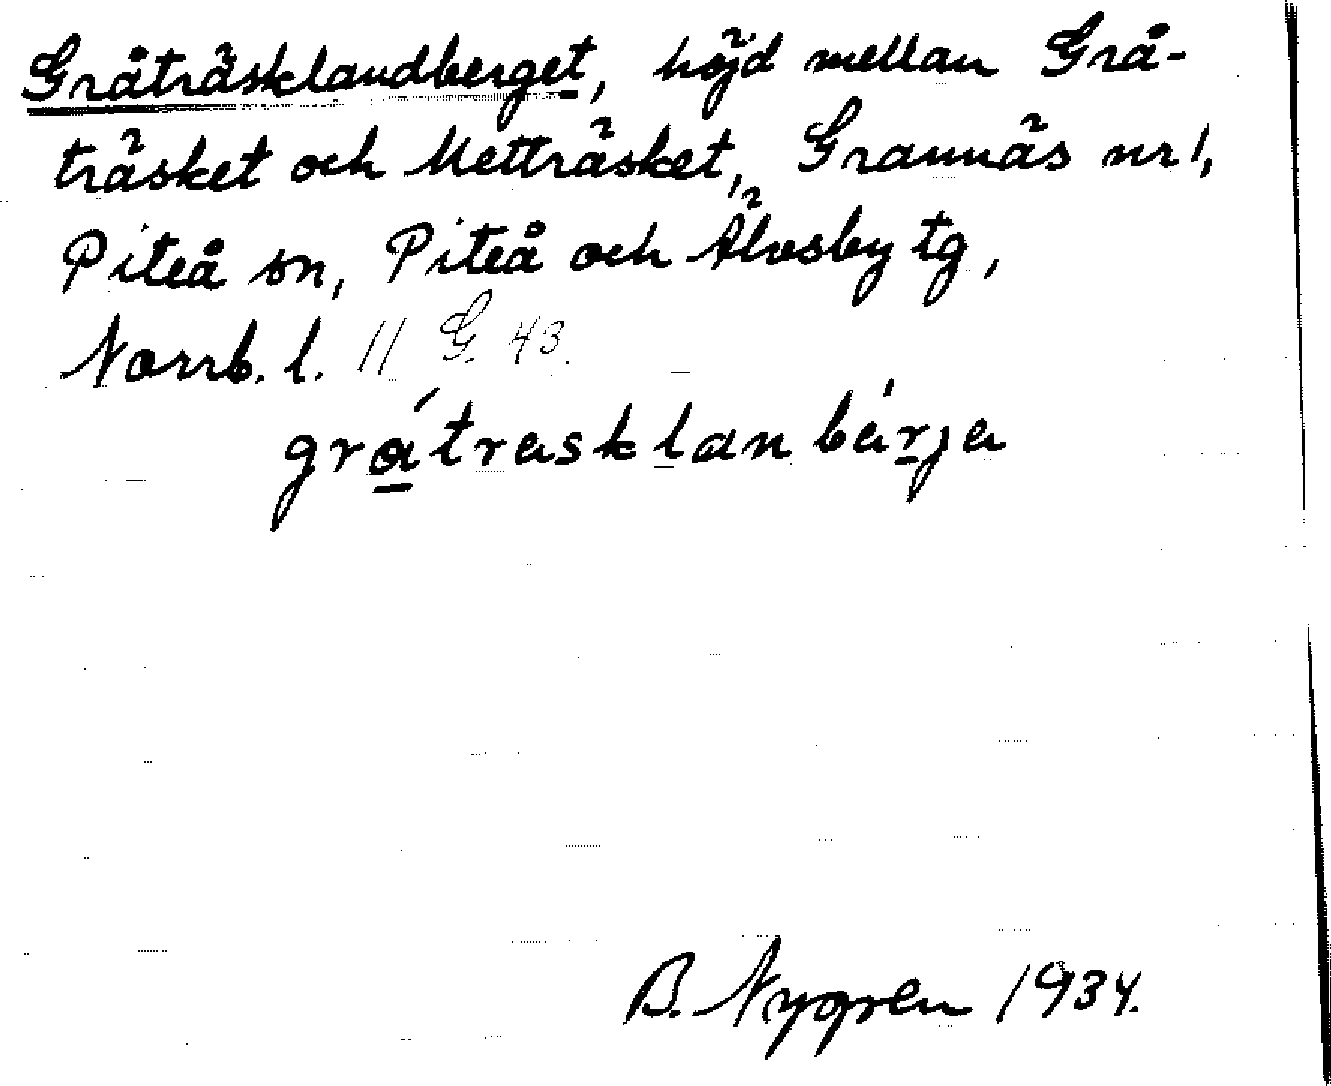 Gråträsklandberget, höjd mellan Grå-
träsket och Metträsket, Grannäs nr 1,
Piteå sn, Piteå och Älvsby tg,
Norrb. l. 11 G. 43.
gråtrasklanbärja
B. Nygren 1934.